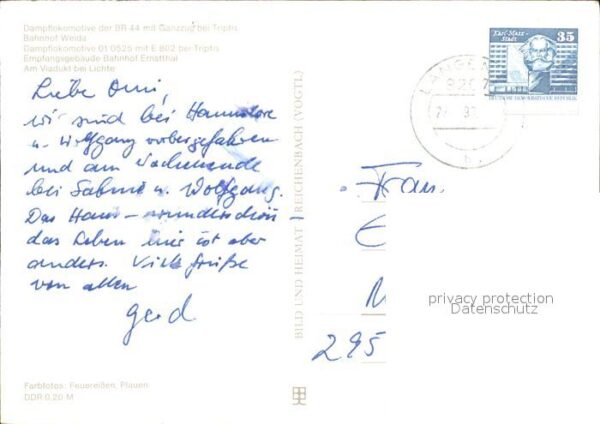 Dampflokomotive der BR 44 mit Ganzzug bei Triptis
Bahnhof Weida
Dampflokomotive 01 0525 mit E 802 bei Triptis
Empfangsgebäude Bahnhof Ernstthal
Am Viadukt bei Lichte
Liebe Omi,
wir sind bei Hannelore
u. Wolfgang vorbeigefahren
und am Wochenende
bei Sabine u. Wolfgang.
Das Haus – wunderschön
das Leben hier ist aber
anders. Viele Grüße
von allen
Gerd
Farbfotos: Feuereißen, Plauen
DDR 0,20 M
BILD UND HEIMAT REICHENBACH (VOGTL)
Karl-Marx-
Stadt
35
DEUTSCHE DEMOKRATISCHE REPUBLIK
Frau
E
M
295
privacy protection
Datenschutz